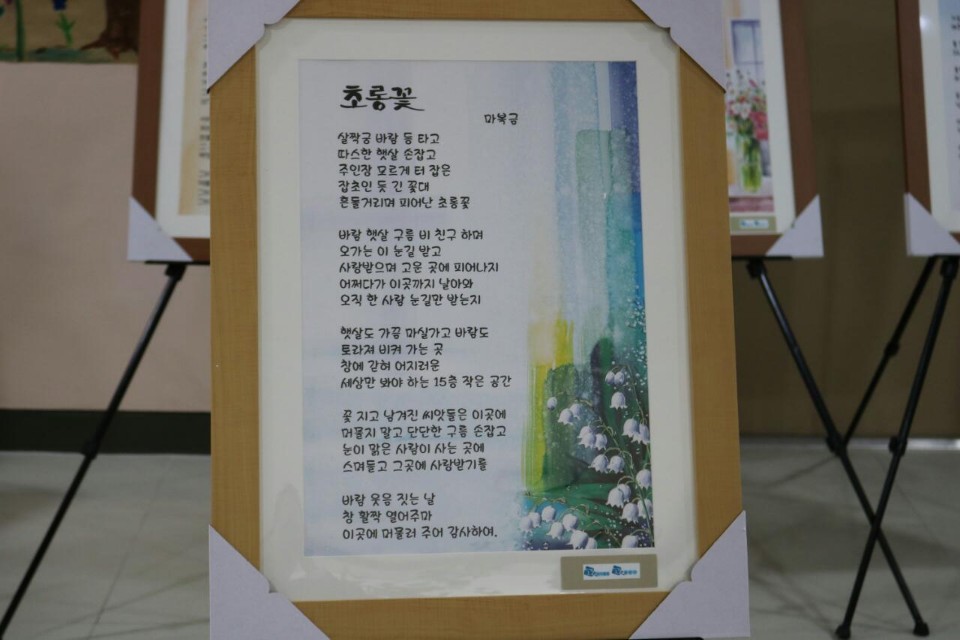 초롱꽃
마복금
살짝궁 바람 등 타고
따스한 햇살 손잡고
주인장 모르게 터 잡은
잡초인 듯 긴 꽃대
흔들거리며 피어난 초롱꽃
바람 햇살 구름 비 친구 하며
오가는 이 눈길 받고
사랑받으며 고운 곳에 피어나지
어쩌다가 이곳까지 날아와
오직 한 사람 눈길만 받는지
햇살도 가끔 마실가고 바람도
토라져 비켜 가는 곳
창에 갇혀 어지러운
세상만 봐야 하는 15층 작은 공간
꽃 지고 남겨진 씨앗들은 이곳에
머물지 말고 단단한 구름 손잡고
눈이 맑은 사람이 사는 곳에
스며들고 그곳에 사랑받기를
바람 웃음 짓는 날
창 활짝 열어주마
이곳에 머물러 주어 감사하여.